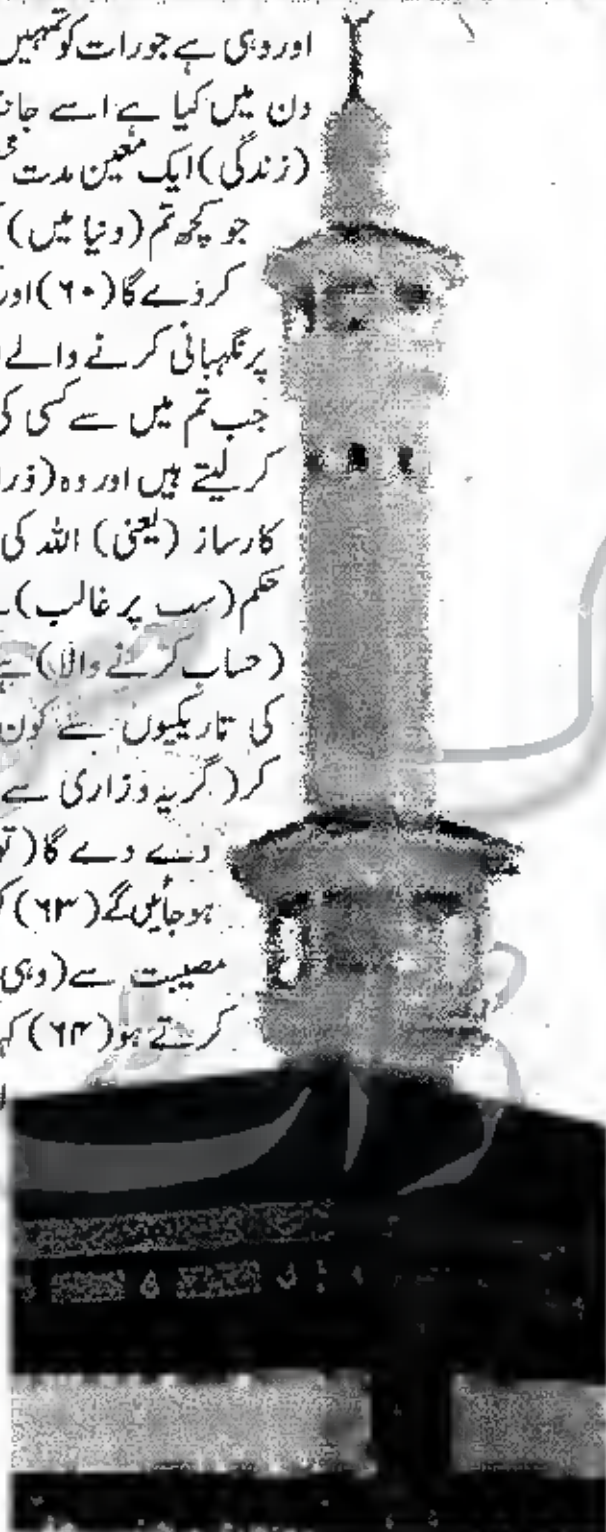 اور وہی ہے جو رات کو تمہیں
دن میں کیا ہے اسے
(زندگی) ایک معین مدت
جو کچھ تم (دنیا میں)
کر دے گا (۶۰) اور
پر نگہبانی کرنے والے
جب تم میں سے کسی کی
کر لیتے ہیں اور وہ (ذرا
کارساز (یعنی) اللہ کی
حکم (سب پر غالب)
(حساب کرنے والا) ہے
کی تاریکیوں سے کون
کر (گریہ وزاری سے
دے دے گا (تو
ہو جائیں گے (۶۳)
مصیبت سے (وہی
کرتے ہو (۶۴)